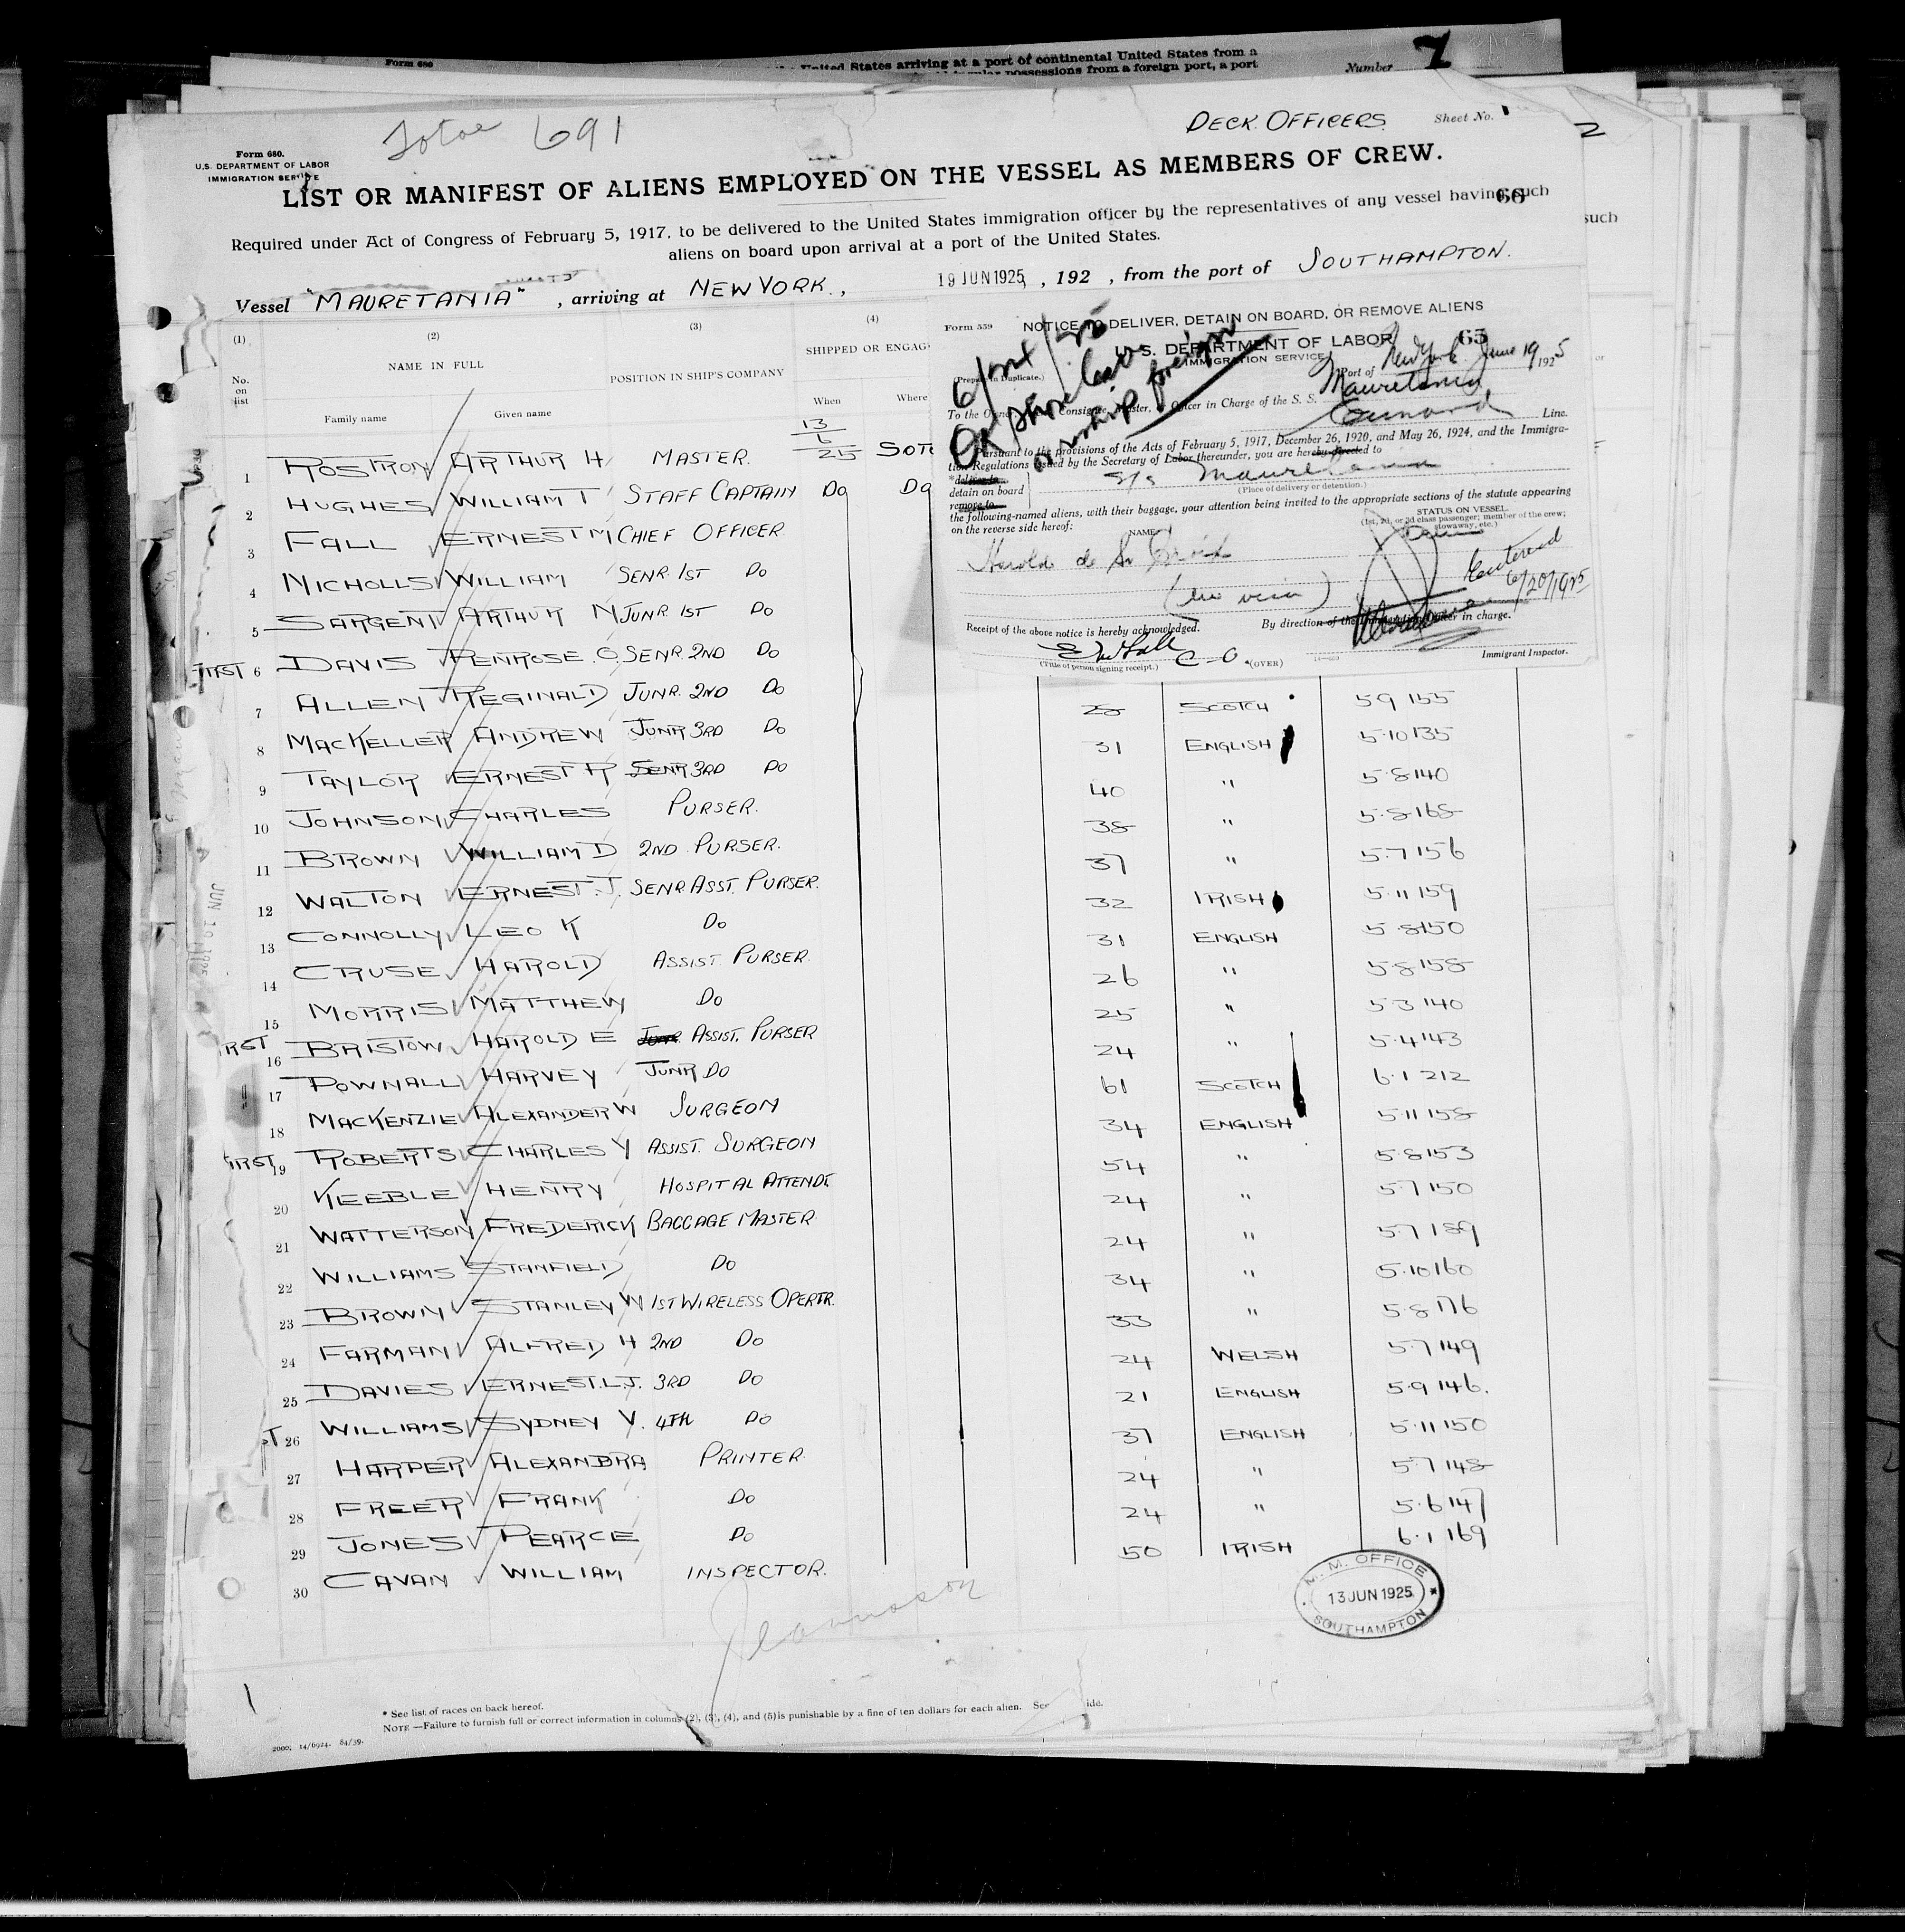 Form 680
United States arriving at a port of continental United States from a
possessions from a foreign port, a port
Number 7
Total 691
DECK OFFICERS. Sheet No. 1
2
Form 680.
U.S. DEPARTMENT OF LABOR
IMMIGRATION SERVICE
LIST OR MANIFEST OF ALIENS EMPLOYED ON THE VESSEL AS MEMBERS OF CREW.
66
Required under Act of Congress of February 5, 1917, to be delivered to the United States immigration officer by the representatives of any vessel having such
such
aliens on board upon arrival at a port of the United States.
Vessel "MAURETANIA", arriving at NEW YORK., 19 JUN 1925, 192 , from the port of SOUTHAMPTON.
(1) (2) (3) (4)
No. on list
NAME IN FULL
Family name Given name
POSITION IN SHIP'S COMPANY
SHIPPED OR ENGAG
When Where
13
6
25 SOT
1 ROSTRON ARTHUR H MASTER.
2 HUGHES WILLIAM T STAFF CAPTAIN DO DO
3 FALL ERNEST M CHIEF OFFICER
4 NICHOLLS WILLIAM SENR. 1ST DO
5 SARGENT ARTHUR N JUNR. 1ST DO
FIRST 6 DAVIS PENROSE. O. SENR. 2ND DO
7 ALLEN REGINALD JUNR. 2ND DO
8 MACKELLER ANDREW JUNR 3RD DO
9 TAYLOR ERNEST R SENR 3RD DO
10 JOHNSON CHARLES PURSER.
11 BROWN WILLIAM D 2ND PURSER.
12 WALTON ERNEST. J. SENR. ASST. PURSER.
13 CONNOLLY LEO K DO
14 CRUSE HAROLD ASSIST. PURSER.
15 MORRIS MATTHEW DO
RST 16 BRISTOW HAROLD E JUNR. ASSIST. PURSER
17 POWNALL HARVEY JUNR DO
18 MACKENZIE ALEXANDER W SURGEON
IRST 19 ROBERTS CHARLES Y ASSIST. SURGEON
20 KEEBLE HENRY HOSPITAL ATTENDT.
21 WATTERSON FREDERICK BAGGAGE MASTER.
22 WILLIAMS STANFIELD DO
23 BROWN STANLEY W 1ST WIRELESS OPERTR.
24 FARMAN ALFRED H 2ND DO
25 DAVIES ERNEST. L. J. 3RD DO
ST 26 WILLIAMS SYDNEY V. 4TH DO
27 HARPER ALEXANDRA PRINTER.
28 FREER FRANK DO
29 JONES PEARCE DO
30 CAVAN WILLIAM INSPECTOR.
Form 559 NOTICE TO DELIVER, DETAIN ON BOARD, OR REMOVE ALIENS
U. S. DEPARTMENT OF LABOR
65
IMMIGRATION SERVICE
(Prepare in Duplicate.)
Port of New York June 19, 1925
To the Owner, Agent, Consignee, Master, or Officer in Charge of the S. S. Mauretania
Cunard Line.
Pursuant to the provisions of the Acts of February 5, 1917, December 26, 1920, and May 26, 1924, and the Immigra-
tion Regulations issued by the Secretary of Labor thereunder, you are hereby directed to
*deliver to
detain on board
remove to
S/S Mauretania
(Place of delivery or detention.)
the following-named aliens, with their baggage, your attention being invited to the appropriate sections of the statute appearing
on the reverse side hereof:
NAME
STATUS ON VESSEL
(1st, 2d, or 3d class passenger; member of the crew;
stowaway, etc.)
Harold de St Croix
(no visa)
Entered
6/20/1925
Receipt of the above notice is hereby acknowledged.
By direction of the Immigration Officer in charge.
E M Fall C-O.
(Title of person signing receipt.) (OVER)
Immigrant Inspector.
OK shore leave
or reship foreign
28 SCOTCH 5.9 155
31 ENGLISH 5.10 135
40 " 5.8 140
38 " 5.8 168
37 " 5.7 156
32 IRISH 5.11 159
31 ENGLISH 5.8 150
26 " 5.8 158
25 " 5.3 140
24 " 5.4 143
61 SCOTCH 6.1 212
34 ENGLISH 5.11 158
54 " 5.8 153
24 " 5.7 150
24 " 5.7 189
34 " 5.10 160
33 " 5.8 176
24 WELSH 5.7 149
21 ENGLISH 5.9 146.
37 ENGLISH 5.11 150
24 " 5.7 148
24 " 5.6 147
50 IRISH 6.1 169
M. M. OFFICE
13 JUN 1925
SOUTHAMPTON
1
* See list of races on back hereof.
NOTE.—Failure to furnish full or correct information in columns (2), (3), (4), and (5) is punishable by a fine of ten dollars for each alien. See ide.
2000. 14/6924. 84/39.